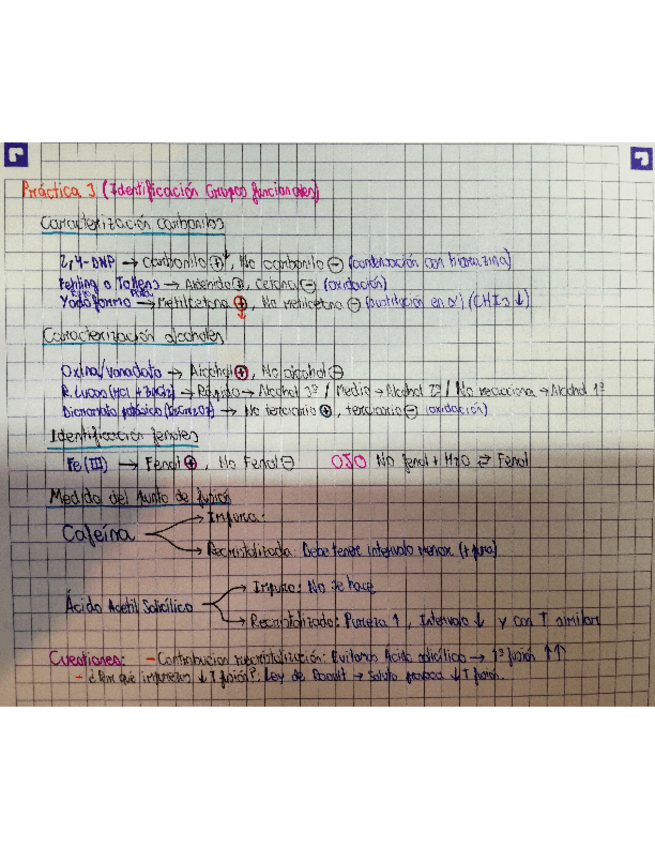 Práctica 3 (Identificación Grupos funcionales)
Caracterización carbonilos
2,4-DNP → Carbonilo ⊕↓, No carbonilo ⊖ (condensación con hidrazina)
Fehling o Tollens → Aldehído ⊕, Cetona ⊖ (oxidación)
Yodoformo → Metilcetona ⊕, No metilcetona ⊖ (sustitución en α) (CHI3 ↓)
Caracterización alcoholes
Oxina/vanadato → Alcohol ⊕, No alcohol ⊖
R. Lucas (HCl + ZnCl2) → Rápido → Alcohol 3º / Medio → Alcohol 2º / No reacciona → Alcohol 1º
Dicromato potásico (K2Cr2O7) → No terciario ⊕, terciario ⊖ (oxidación)
Identificación fenoles
Fe(III) → Fenol ⊕, No Fenol ⊖ OJO No fenol + H2O ⇄ Fenol
Medida del punto de fusión
Cafeína
→ Impura:
→ Recristalizada: Debe tener intervalo menor (+ pura)
Ácido Acetil Salicílico
→ Impuro: No se hace
→ Recristalizado: Pureza ↑, Intervalo ↓ y con T similar
Cuestiones: - Contribución recristalización: Evitamos Ácido salicílico → Tª fusión ↑↑
- ¿Por qué impurezas ↓ T fusión?: Ley de Raoult → Soluto provoca ↓ T fusión.